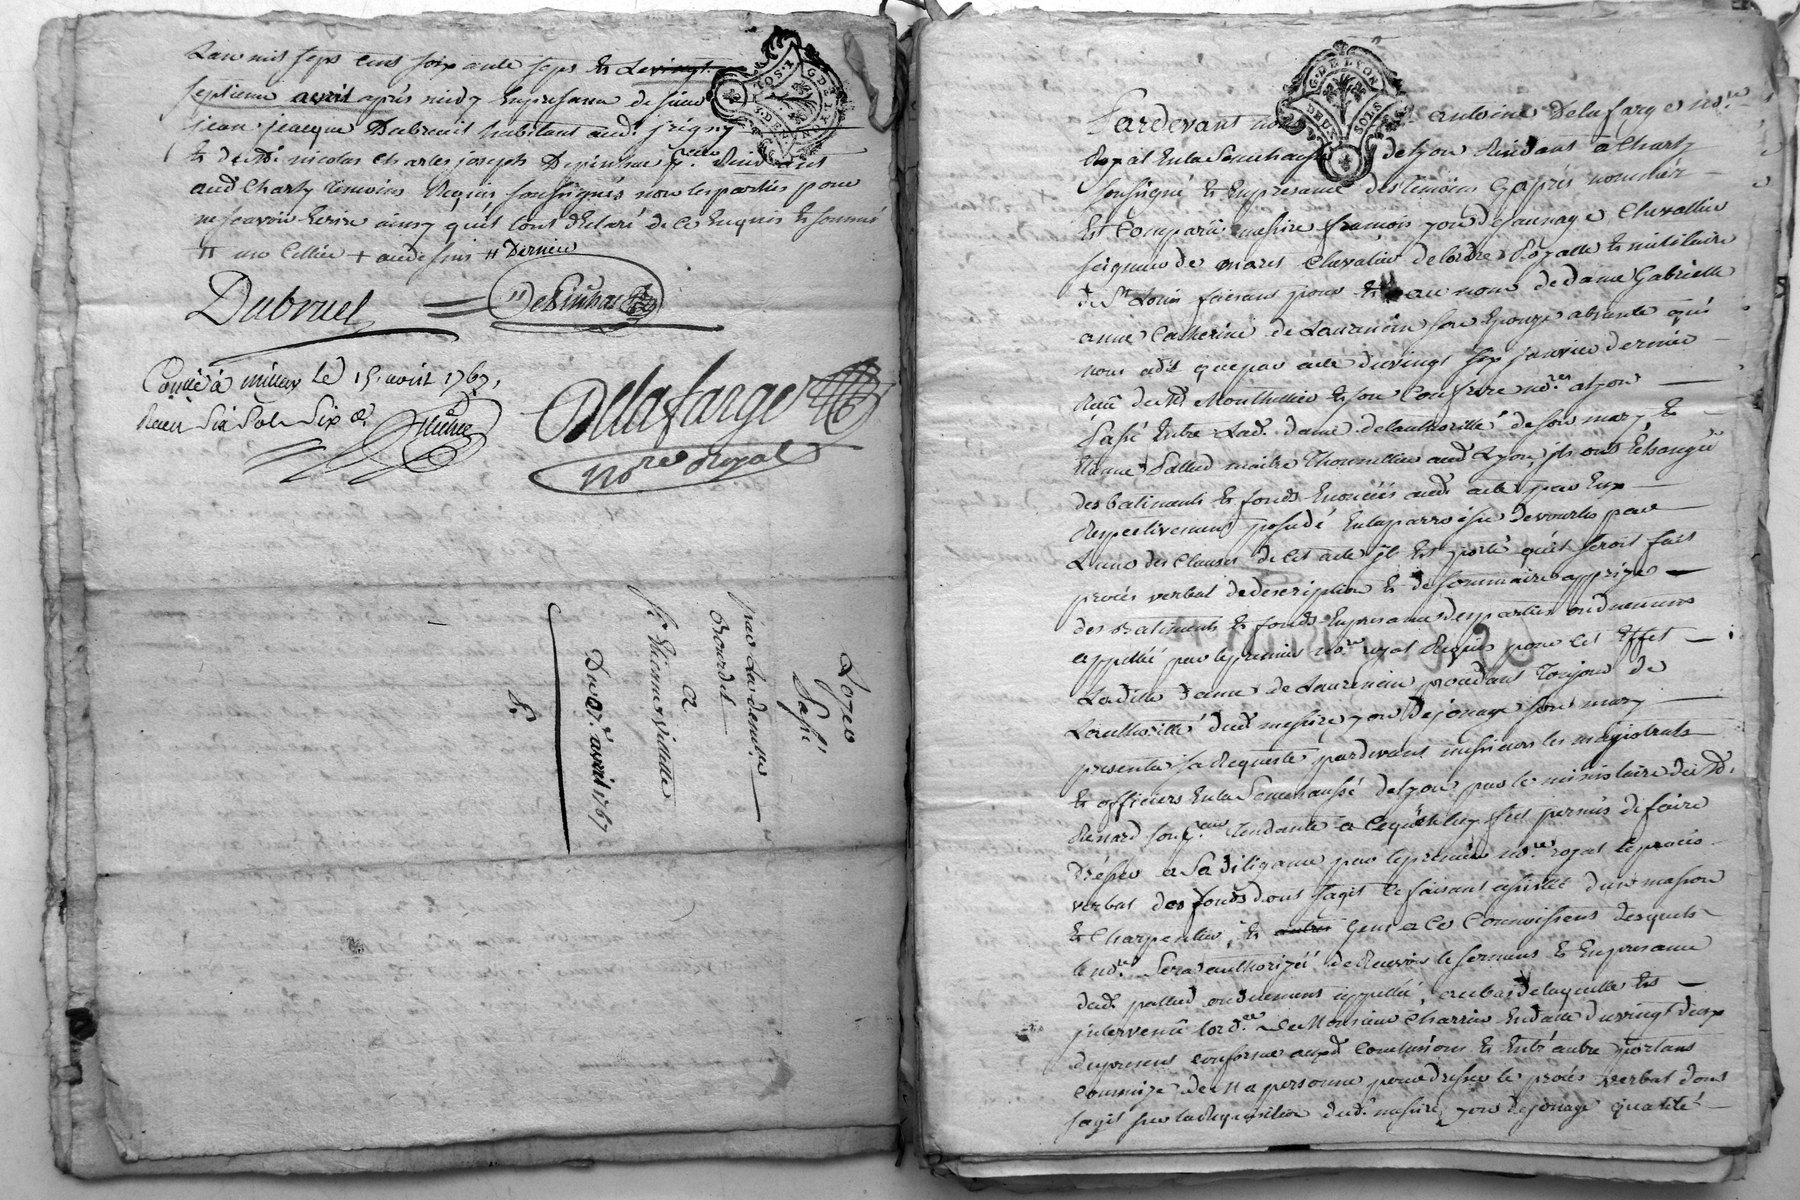 L'an mil sept cens soixante sept et le vingt
septieme avril après midy en presence de sieur
jean jacque Dubrueil habitant aud. jrigny
et de Me. nicolas charles joseph
aud. Charly temoins Requis soussignés non les parties pour
ne scavoir Ecrire ainsy quils l'ont déclaré de ce Enquis et sommé
Dernier
Dubruel
Delafarge
Nore royal
Conlé à millery le avril 1767,
Recu Six Sols Six d.
Loyer
Passé
par La
a
Sr. Etienne villette
Du 27e. avril 1767
G. DE LYON
DEUX SOLS
Pardevant nous antoine Delafarge nore.
Royal En la Senechaussée de Lyon Residant à Charly
soussigné et En presence des témoins cy après nommés
Est comparu messire francois yon de jonnage chevallier
seigneur de mares chevalier de l'ordre Royalle et militaire
de St. Louis faisant pour et au nom de dame Gabrielle
anne Catherine de Laurencin son Epouze absente qui
nous a dit que par acte du vingt six janvier dernier
Recu de Me. Monthellier et son Confrere nores. a Lyon
Passé Entre Lad. dame de l'authorité de son mary et
maitre aud. Lyon, jls ont Echangé
des batiments et fonds Enoncés aud. acte par Eux
Respectivement possedé En la parroisse de vourles par
L'une des clauses de cet acte jl Est porté qu'il seroit fait
procés verbal de description et de sommaire apprize
des Batiments et fonds En presence des parties ou duement
appellée par le premier nore. royal Requis pour cet Effet
Ladite dame de Laurencin procedant Toujour de
L'authorité dud. messire yon de jonage son mary
presenta sa Requeste pardevant messieurs les magistrats
et officiers En la Senechaussé de Lyon par le ministaire de Me.
Renard son tendante a ce qu'il luy fut permis de faire
dresser a Sa diligeance par le premier nore. royal le procés
verbal des fonds dont s'agit ce faisant assisté d'un masson
et charpentier, et autres Gens a ce Connoissens desquels
le nore. Sera authorizéé de Recevoir le serment et En presence
dud. pallud ou duement appellé, au bas de laquelle Est
jntervenu l'ordce. de Monsieur Charrier En date du vingt deux
du present conforme auxd. conclusions et Entr'autre portant
commize de Ma personne pour dresser le procés verbal dont
s'agit sur la Requisition dud. messire yon de jonage qualité